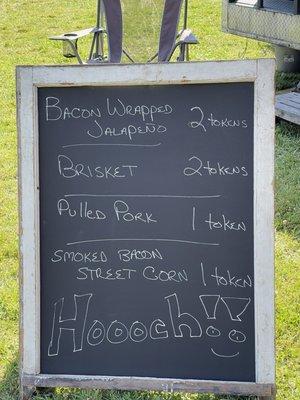 Bacon Wrapped
Jalapeño 2 tokens
Brisket 2 tokens
Pulled Pork 1 token
Smoked Bacon
Street Corn 1 token
Hoooch!!